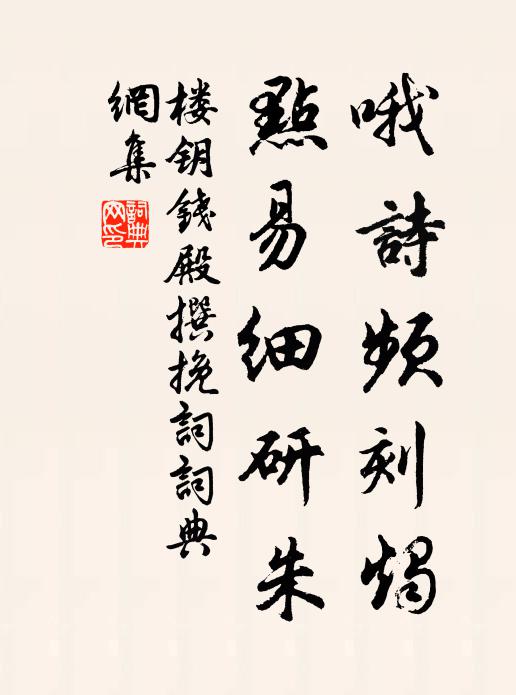 哦詩頻刻燭
點易細研朱
楼钥錢殿撰挽詞詞典
網集
詞典網印